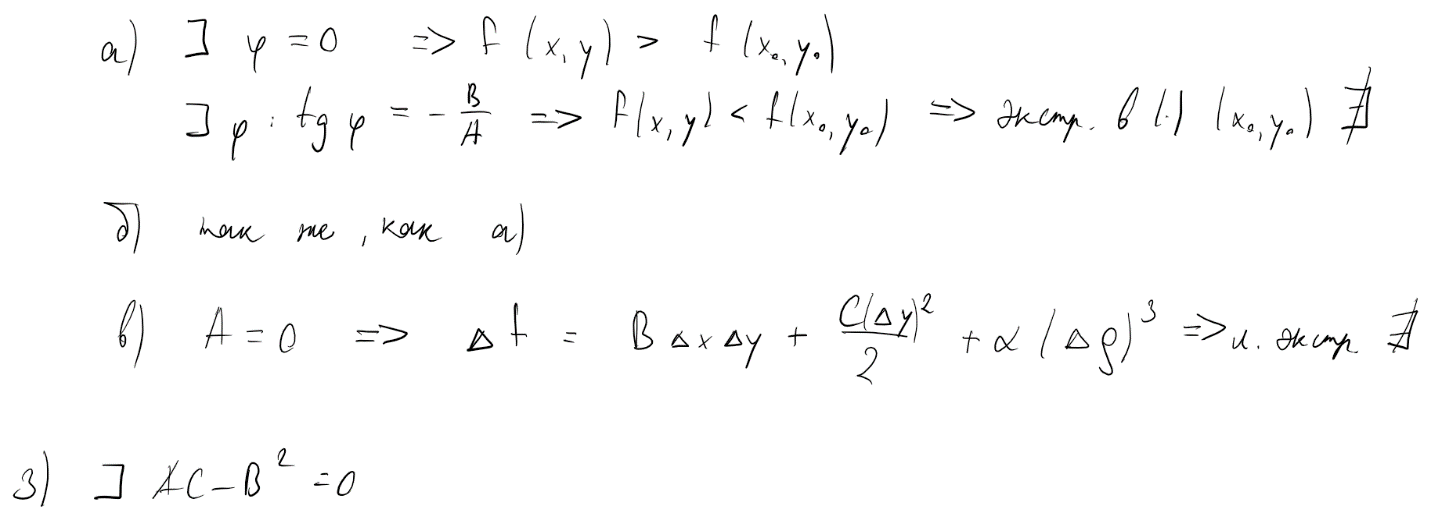 а) ∃ φ = 0 => f (x, y) > f (x₀, y₀)
∃ φ : tg φ = - B/A => f(x, y) < f(x₀, y₀) => экстр. в (.) (x₀, y₀) ∄
б) так же, как а)
в) A = 0 => Δf = BΔxΔy + C(Δy)²/2 + α(Δρ)³ => л. экстр ∄
3) ∃ AC - B² = 0